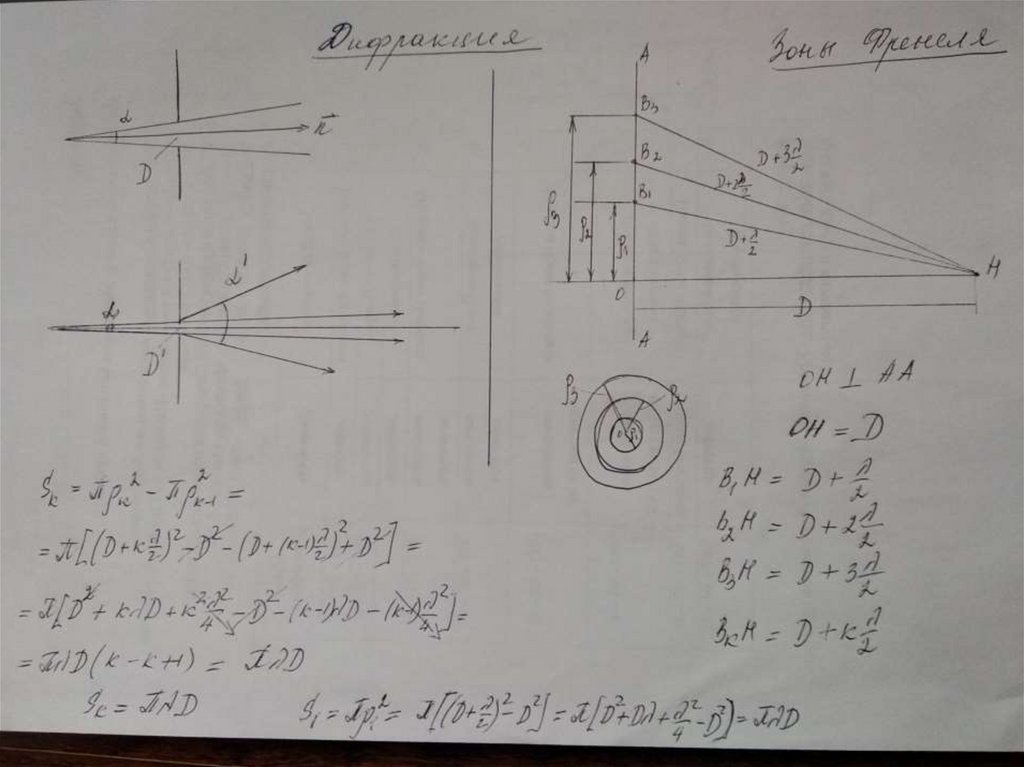 Дифракция
Зоны Френеля
α
n⃗
D
α
α'
D'
A
B₃
B₂
B₁
D+3λ/2
D+2λ/2
D+λ/2
ρ₃
ρ₂
ρ₁
O
H
D
A
ρ₃
ρ₂
OH ⊥ AA
OH = D
B₁H = D + λ/2
B₂H = D + 2λ/2
B₃H = D + 3λ/2
BₖH = D + kλ/2
Sₖ = πρₖ² − πρₖ₋₁² =
= π[(D+kλ/2)² − D² − (D+(k-1)λ/2)² + D²] =
= π[D² + kλD + k²λ²/4 − D² − (k-1)λD − (k-1)λ²/4] =
= πλD(k−k+1) = πλD
Sₖ = πλD
S₁ = πρ₁² = π[(D+λ/2)² − D²] = π[D²+Dλ+λ²/4 −D²) = πλD